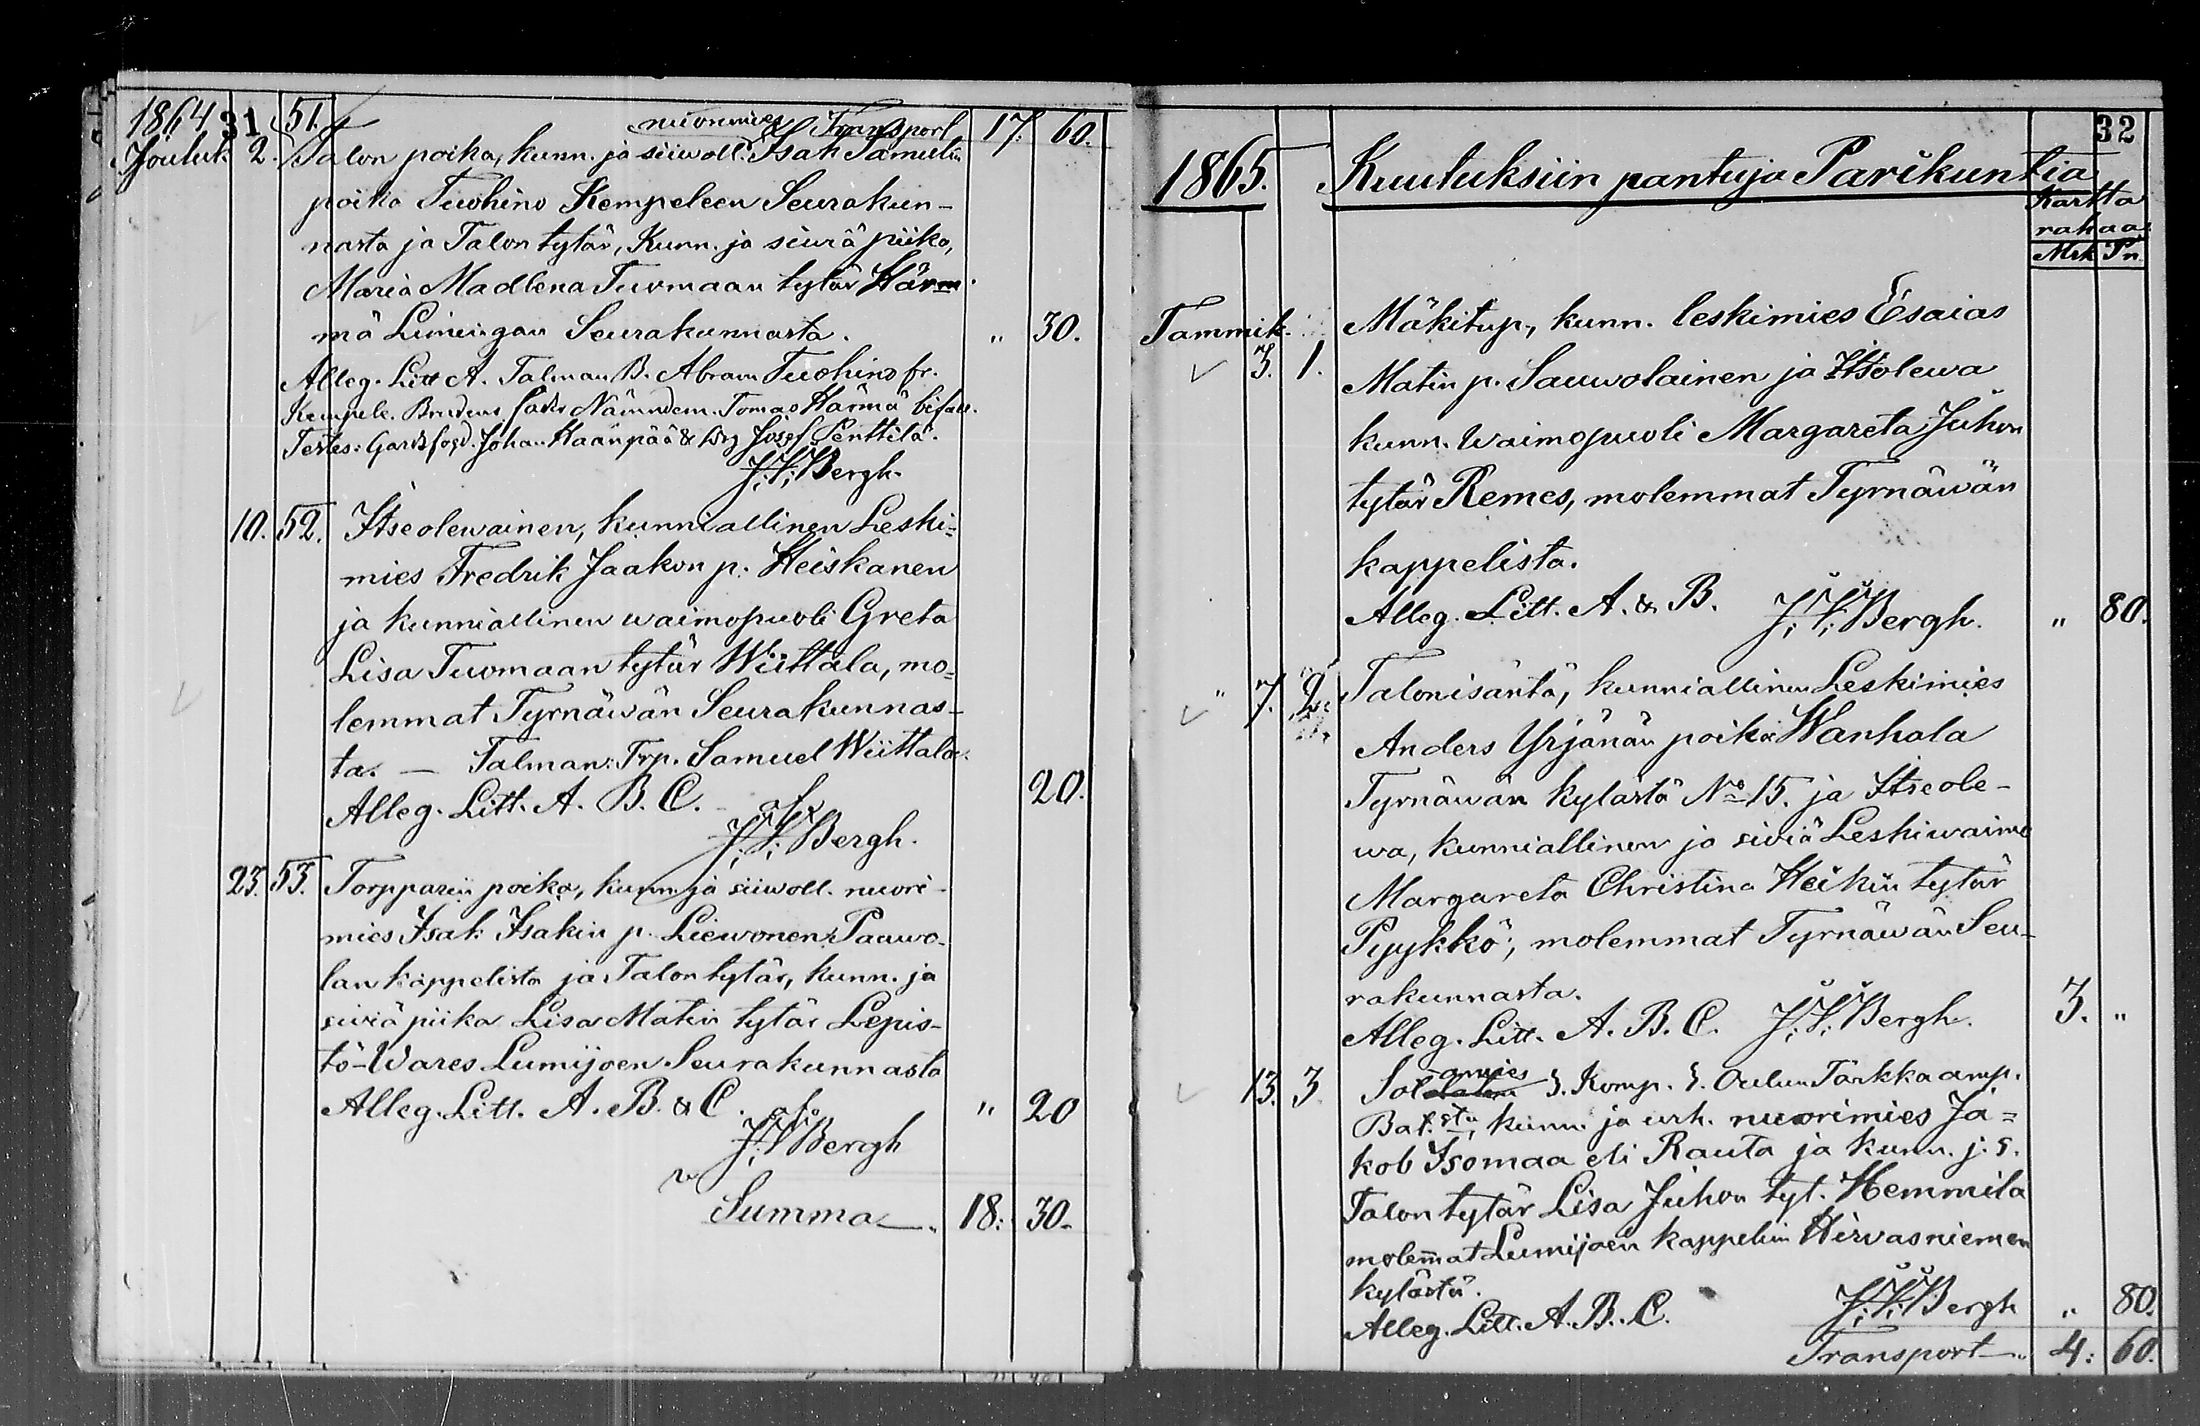 1864 31 51. nuorimies Transport 17. 60.
Jouluk. 2. Talon poika, kunn. ja siiwoll. Isak Samulin
poika Tuohino Kempeleen Seurakun-
nasta ja Talon tytär, Kunn. ja siwiä piika,
Maria Madlena Tuomaan tytär Härm-
mä Limingan Seurakunnasta. " 30.
Alleg. Litt A. Talman B. Abram Tuohino fr.
Kempele. Brudens fader Nämndem. Tomas Härmä bifall.
Testes: Gardsfogd. Johan Haanpää & Josef Penttilä.
J. V. Bergh.
10. 52. Itseolewainen, kunniallinen Leski-
mies Fredrik Jaakon p. Heiskanen
ja kunniallinen waimopuoli Greta
Lisa Tuomaan tytär Wiittala, mo-
lemmat Tyrnäwän Seurakunnas-
ta. — Talman: Trp. Samuel Wiittala.
Alleg. Litt. A. B. C. 20.
J. V. Bergh.
23. 53. Torpparin poika, kunn. ja siiwoll. nuori-
mies Isak Isakin p. Liewonen Paawo-
lan kappelista ja Talon tytär, kunn. ja
siwiä piika Lisa Matin tytär Lepis-
tö-Wares Lumijoen Seurakunnasta
Alleg. Litt. A. B. & C. " 20
J. V. Bergh
Summa 18: 30.
32
1865. Kuuluksiin pantuja Parikuntia
Kartta
rahaa.
Mrk Pn.
Tammik. Mäkitup., kunn. leskimies Esaias
3. 1. Matin p. Sauwolainen ja Itsolewa
kunn. waimopuoli Margareta Juhon
tytär Remes, molemmat Tyrnäwän
kappelista.
Alleg. Litt. A. & B. J. V. Bergh. " 80.
" 7. 2. Talonisäntä, kunniallinen Leskimies
Anders Yrjänän poika Wanhala
Tyrnäwän kylästä No 15. ja Itseole-
wa, kunniallinen ja siwiä Leskiwaimo
Margareta Christina Heikin tytär
Pyykkö, molemmat Tyrnäwän Seu-
rakunnasta.
Alleg. Litt. A. B. C. J. V. Bergh. 3. "
13. 3 Sotamies 3. Komp. 3. Oulun Tarkkaamp.
Bat.sta, kunn. ja urh. nuorimies Ja-
kob Isomaa eli Rauta ja kunn. j. s.
Talon tytär Lisa Juhon tyt. Hemmilä
molemmat Lumijoen kappelin Hirvasniemen
kylästä.
Alleg. Litt. A. B. C. J. V. Bergh " 80.
Transport 4: 60.